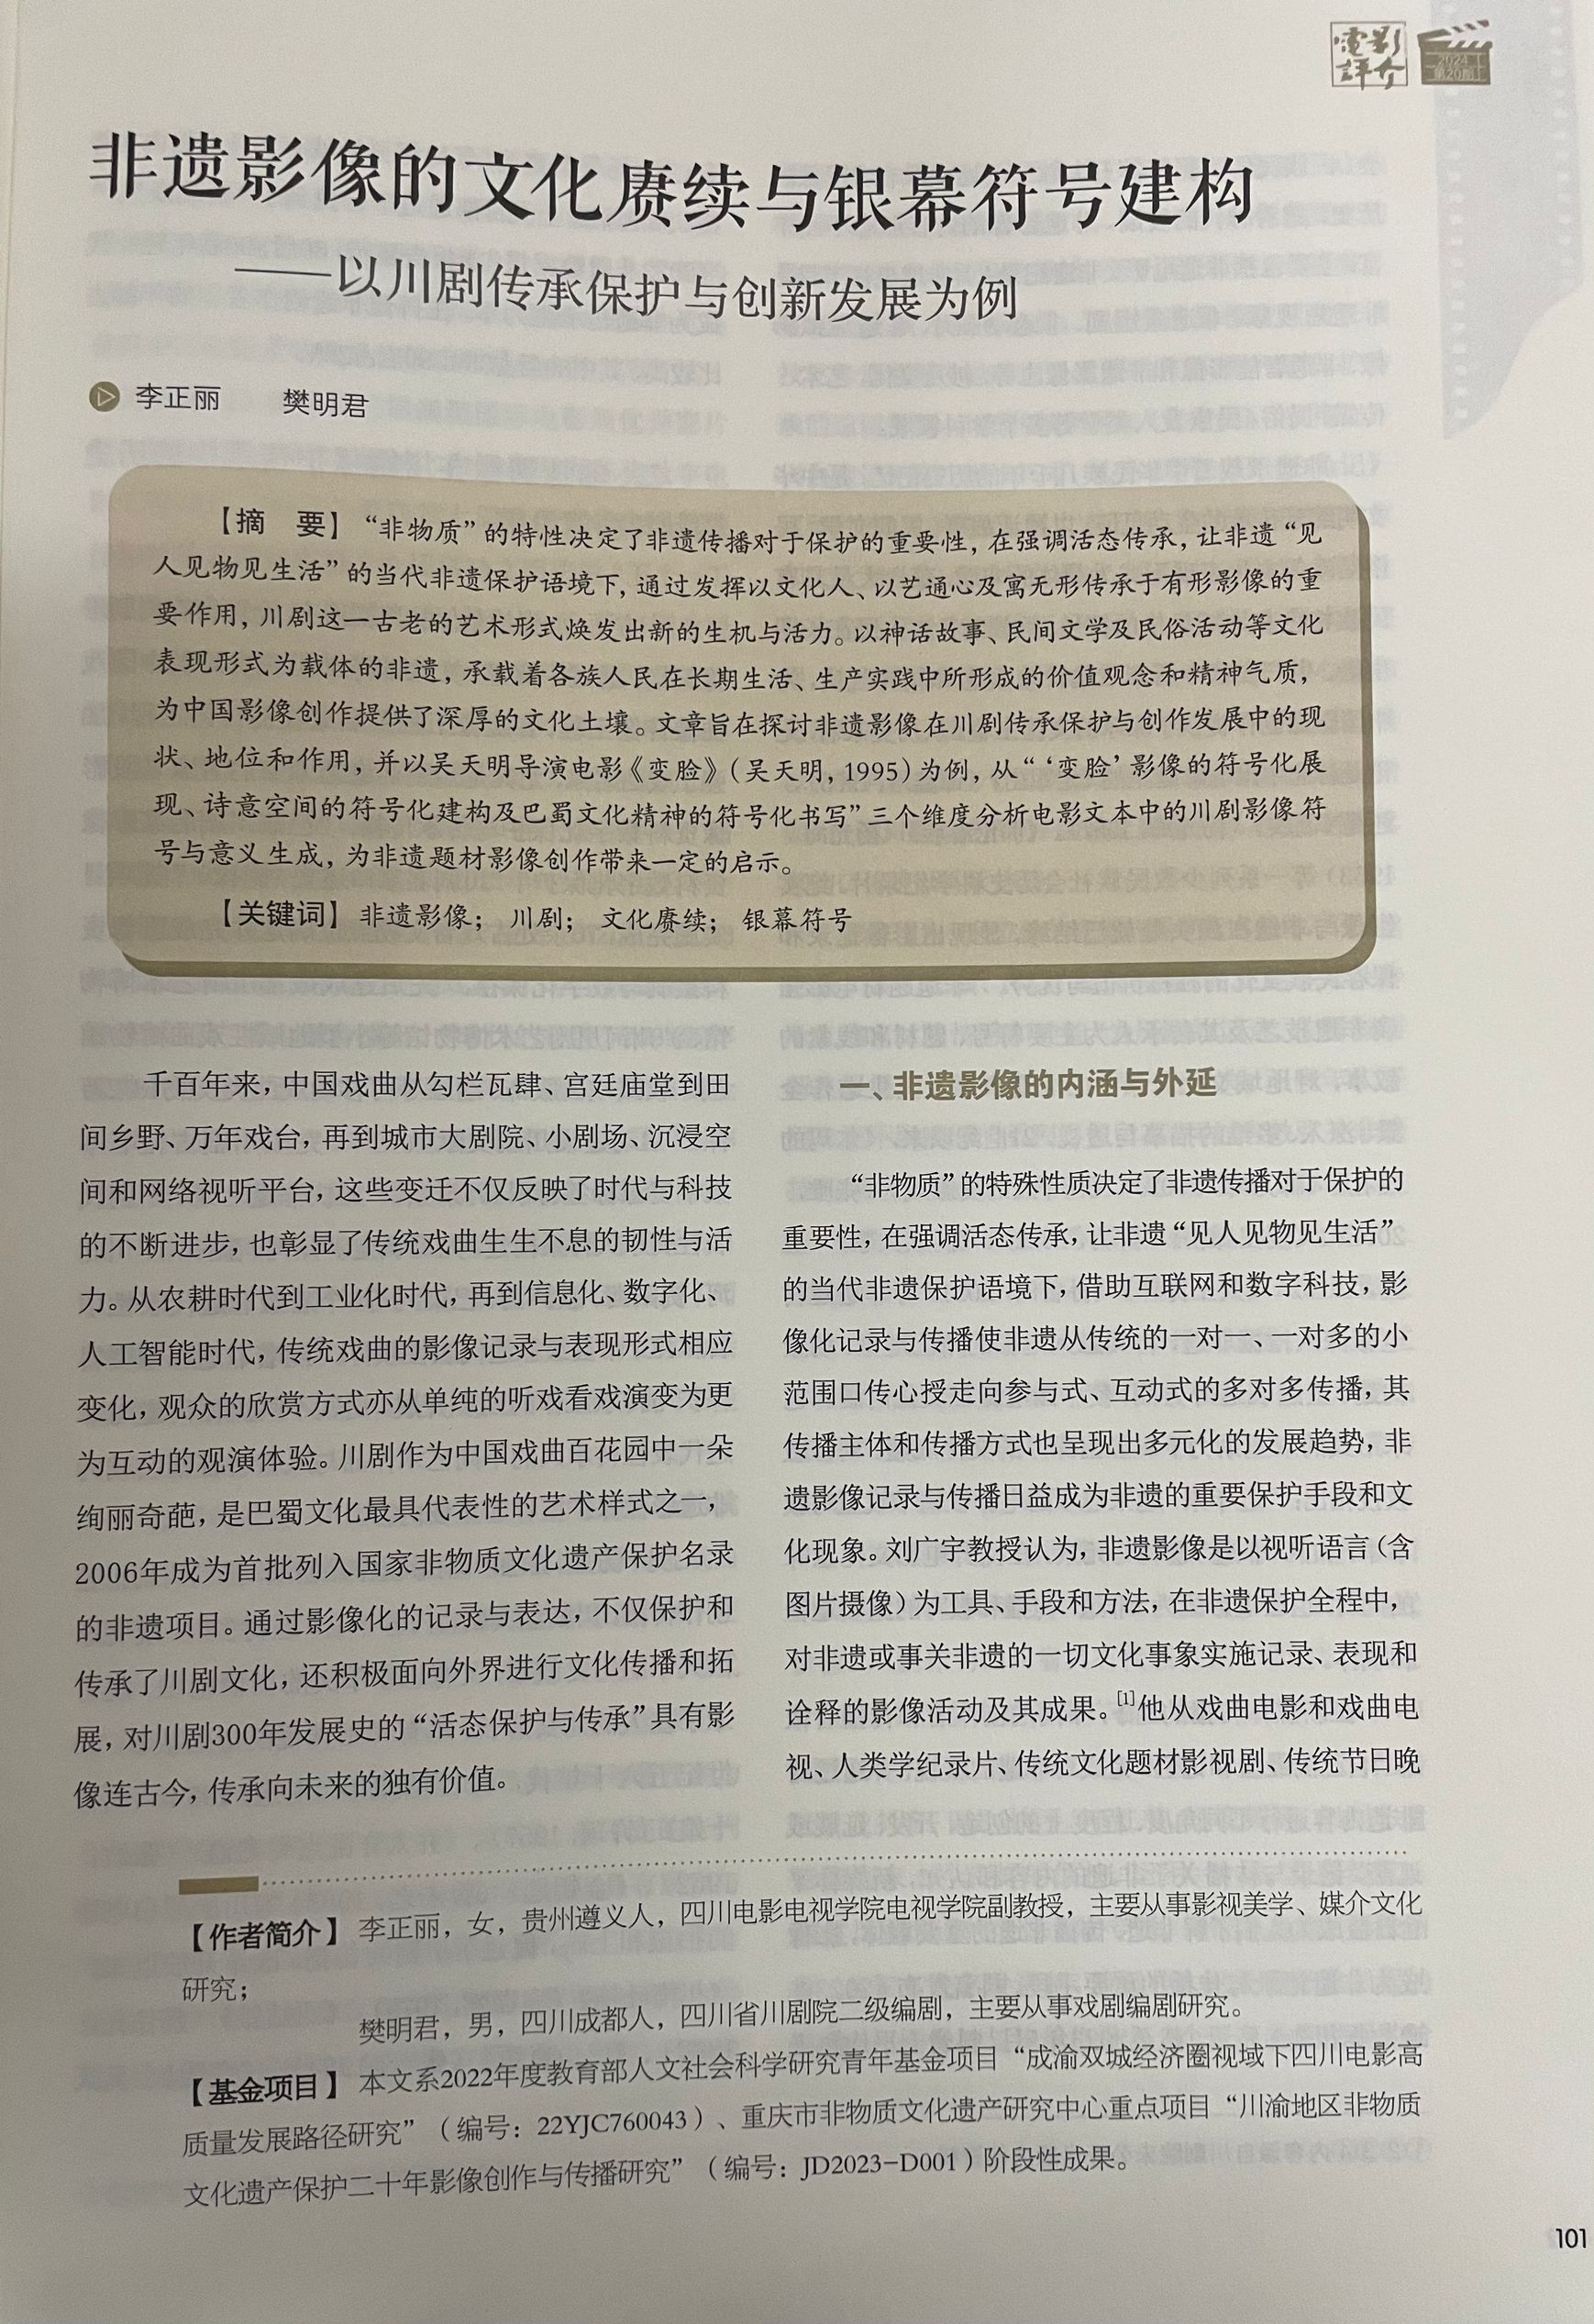 電影
評介
2024
第20期
非遗影像的文化赓续与银幕符号建构
——以川剧传承保护与创新发展为例
李正丽 樊明君
【摘 要】“非物质”的特性决定了非遗传播对于保护的重要性，在强调活态传承，让非遗“见
人见物见生活”的当代非遗保护语境下，通过发挥以文化人、以艺通心及寓无形传承于有形影像的重
要作用，川剧这一古老的艺术形式焕发出新的生机与活力。以神话故事、民间文学及民俗活动等文化
表现形式为载体的非遗，承载着各族人民在长期生活、生产实践中所形成的价值观念和精神气质，
为中国影像创作提供了深厚的文化土壤。文章旨在探讨非遗影像在川剧传承保护与创作发展中的现
状、地位和作用，并以吴天明导演电影《变脸》（吴天明，1995）为例，从“‘变脸’影像的符号化展
现、诗意空间的符号化建构及巴蜀文化精神的符号化书写”三个维度分析电影文本中的川剧影像符
号与意义生成，为非遗题材影像创作带来一定的启示。
【关键词】非遗影像； 川剧； 文化赓续； 银幕符号
千百年来，中国戏曲从勾栏瓦肆、宫廷庙堂到田
间乡野、万年戏台，再到城市大剧院、小剧场、沉浸空
间和网络视听平台，这些变迁不仅反映了时代与科技
的不断进步，也彰显了传统戏曲生生不息的韧性与活
力。从农耕时代到工业化时代，再到信息化、数字化、
人工智能时代，传统戏曲的影像记录与表现形式相应
变化，观众的欣赏方式亦从单纯的听戏看戏演变为更
为互动的观演体验。川剧作为中国戏曲百花园中一朵
绚丽奇葩，是巴蜀文化最具代表性的艺术样式之一，
2006年成为首批列入国家非物质文化遗产保护名录
的非遗项目。通过影像化的记录与表达，不仅保护和
传承了川剧文化，还积极面向外界进行文化传播和拓
展，对川剧300年发展史的“活态保护与传承”具有影
像连古今，传承向未来的独有价值。
一、非遗影像的内涵与外延
“非物质”的特殊性质决定了非遗传播对于保护的
重要性，在强调活态传承，让非遗“见人见物见生活”
的当代非遗保护语境下，借助互联网和数字科技，影
像化记录与传播使非遗从传统的一对一、一对多的小
范围口传心授走向参与式、互动式的多对多传播，其
传播主体和传播方式也呈现出多元化的发展趋势，非
遗影像记录与传播日益成为非遗的重要保护手段和文
化现象。刘广宇教授认为，非遗影像是以视听语言（含
图片摄像）为工具、手段和方法，在非遗保护全程中，
对非遗或事关非遗的一切文化事象实施记录、表现和
诠释的影像活动及其成果。[1]他从戏曲电影和戏曲电
视、人类学纪录片、传统文化题材影视剧、传统节日晚
【作者简介】 李正丽，女，贵州遵义人，四川电影电视学院电视学院副教授，主要从事影视美学、媒介文化
研究；
樊明君，男，四川成都人，四川省川剧院二级编剧，主要从事戏剧编剧研究。
【基金项目】 本文系2022年度教育部人文社会科学研究青年基金项目“成渝双城经济圈视域下四川电影高
质量发展路径研究”（编号：22YJC760043）、重庆市非物质文化遗产研究中心重点项目“川渝地区非物质
文化遗产保护二十年影像创作与传播研究”（编号：JD2023-D001）阶段性成果。
101